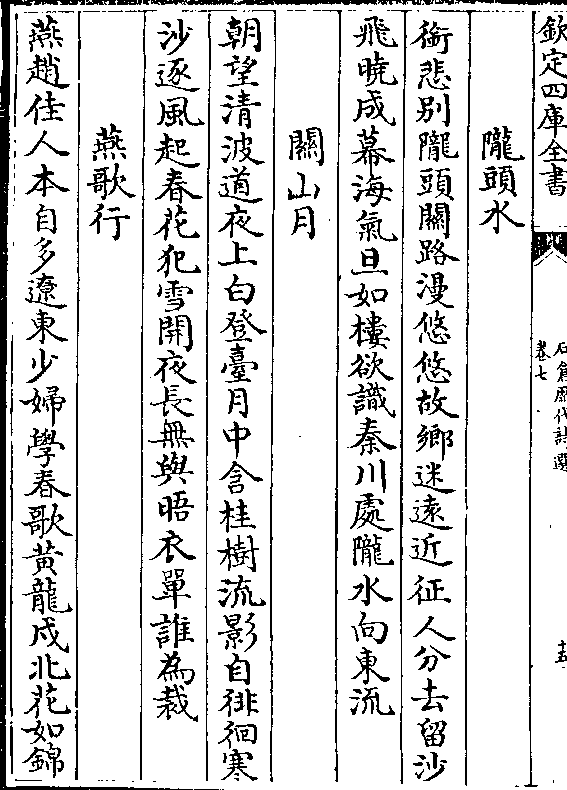 欽定四庫全書
石倉歷代詩選
卷七
十五
隴頭水
銜悲別隴頭關路漫悠悠故鄉迷遠近征人分去留沙
飛曉成幕海氣旦如樓欲識秦川處隴水向東流
關山月
朝望清波道夜上白登臺月中含桂樹流影自徘徊寒
沙逐風起春花犯雪開夜長無與晤衣單誰為裁
燕歌行
燕趙佳人本自多遼東少婦學春歌黃龍戍北花如錦